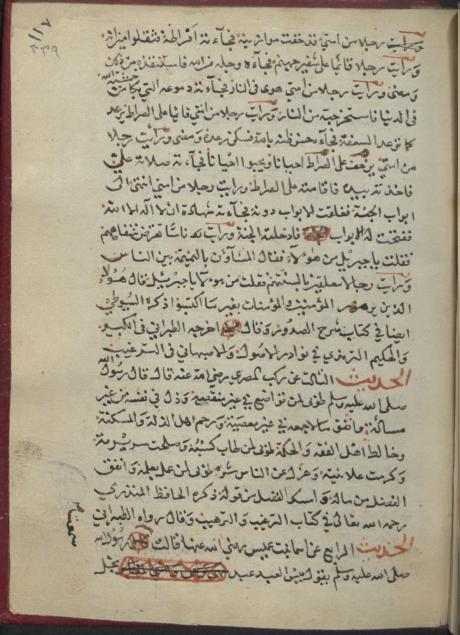 ورأيت رجلا من امتي قد خفت موازينه فجآءته افراطه فثقلوا ميزانه
ورأيت رجلا قائما على شفير جهنم فجآءه وجله من الله فاستنقذه من ذلك
ومضى ورأيت رجلا من امتي هوى في النار فجآءته دموعه التي بكا من خشية الله
في الدنيا فاستخرجته من النار ورأيت رجلا من امتي قائما على الصراط يرعد
كما ترعد السعفة فجآءه حسن ظنه بالله فسكن رعده ومضى ورأيت رجلا
من امتي يزحف على الصراط احيانا ويحبوا احيانا فجآءته صلاته علي
فاخذته بيده فاقامته على الصراط ورأيت رجلا من امتي انتهى الى
ابواب الجنة فغلقت الابواب دونه فجآءته شهادة ان لا اله الا الله
ففتحت له الابواب فادخلته الجنة ورأيت ناسا تقرض شفاههم
فقلت يا جبريل من هؤلاء فقال المشاؤن بالنميمة بين الناس
ورأيت رجالا معلقين بالسنتهم فقلت من هؤلاء يا جبريل قال هؤلاء
الذين يرمون المؤمنين والمؤمنات بغير ما اكتسبوا ذكره السيوطي
ايضا في كتاب شرح الصدور وقال اخرجه الطبراني في الكبير
والحكيم الترمذي في نوادر الاصول والاصبهاني في الترغيب
الحديث الثالث عن ركب المصري رضي الله عنه قال قال رسول الله
صلى الله عليه وسلم طوبى لمن تواضع في غير منقصة وذل في نفسه من غير
مسئلة وانفق مالا جمعه في غير معصية ورحم اهل الذلة والمسكنة
وخالط اهل الفقه والحكمة طوبى لمن طاب كسبه وصلحت سريرته
وكرمت علانيته وعزل عن الناس شره طوبى لمن عمل بعلمه وانفق
الفضل من ماله وامسك الفضل من قوله ذكره الحافظ المنذري
رحمه الله تعالى في كتاب الترغيب والترهيب وقال رواه الطبراني
الحديث الرابع عن اسما بنت عميس رضي الله عنها قالت رسول الله
صلى الله عليه وسلم يقول بئس العبد عبد